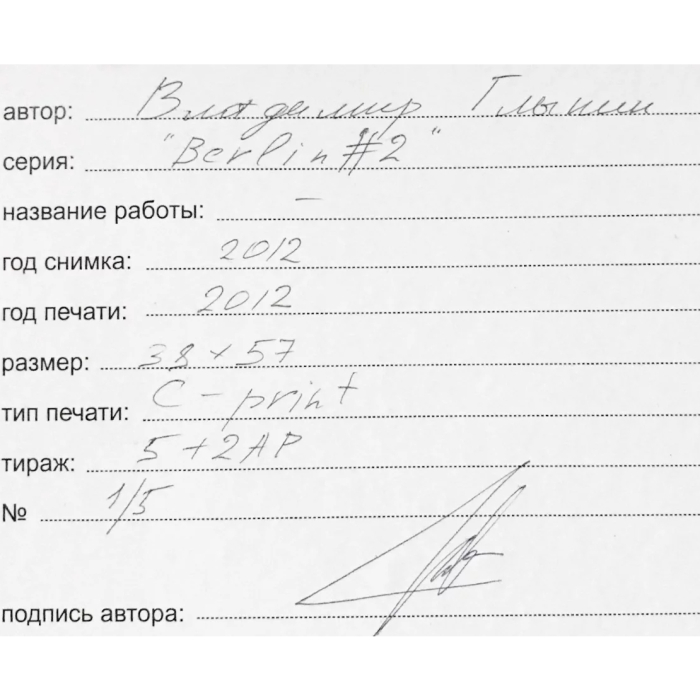 автор: Владимир Глынин
серия: "Berlin #2"
название работы: —
год снимка: 2012
год печати: 2012
размер: 38 x 57
тип печати: C-print
тираж: 5+2AP
№ 1/5
подпись автора: